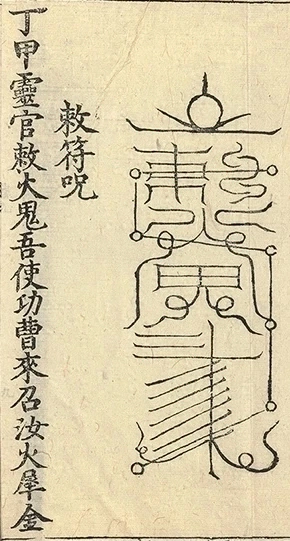 敕符呪
丁甲靈官敕火鬼吾使功曹來召汝火犀金